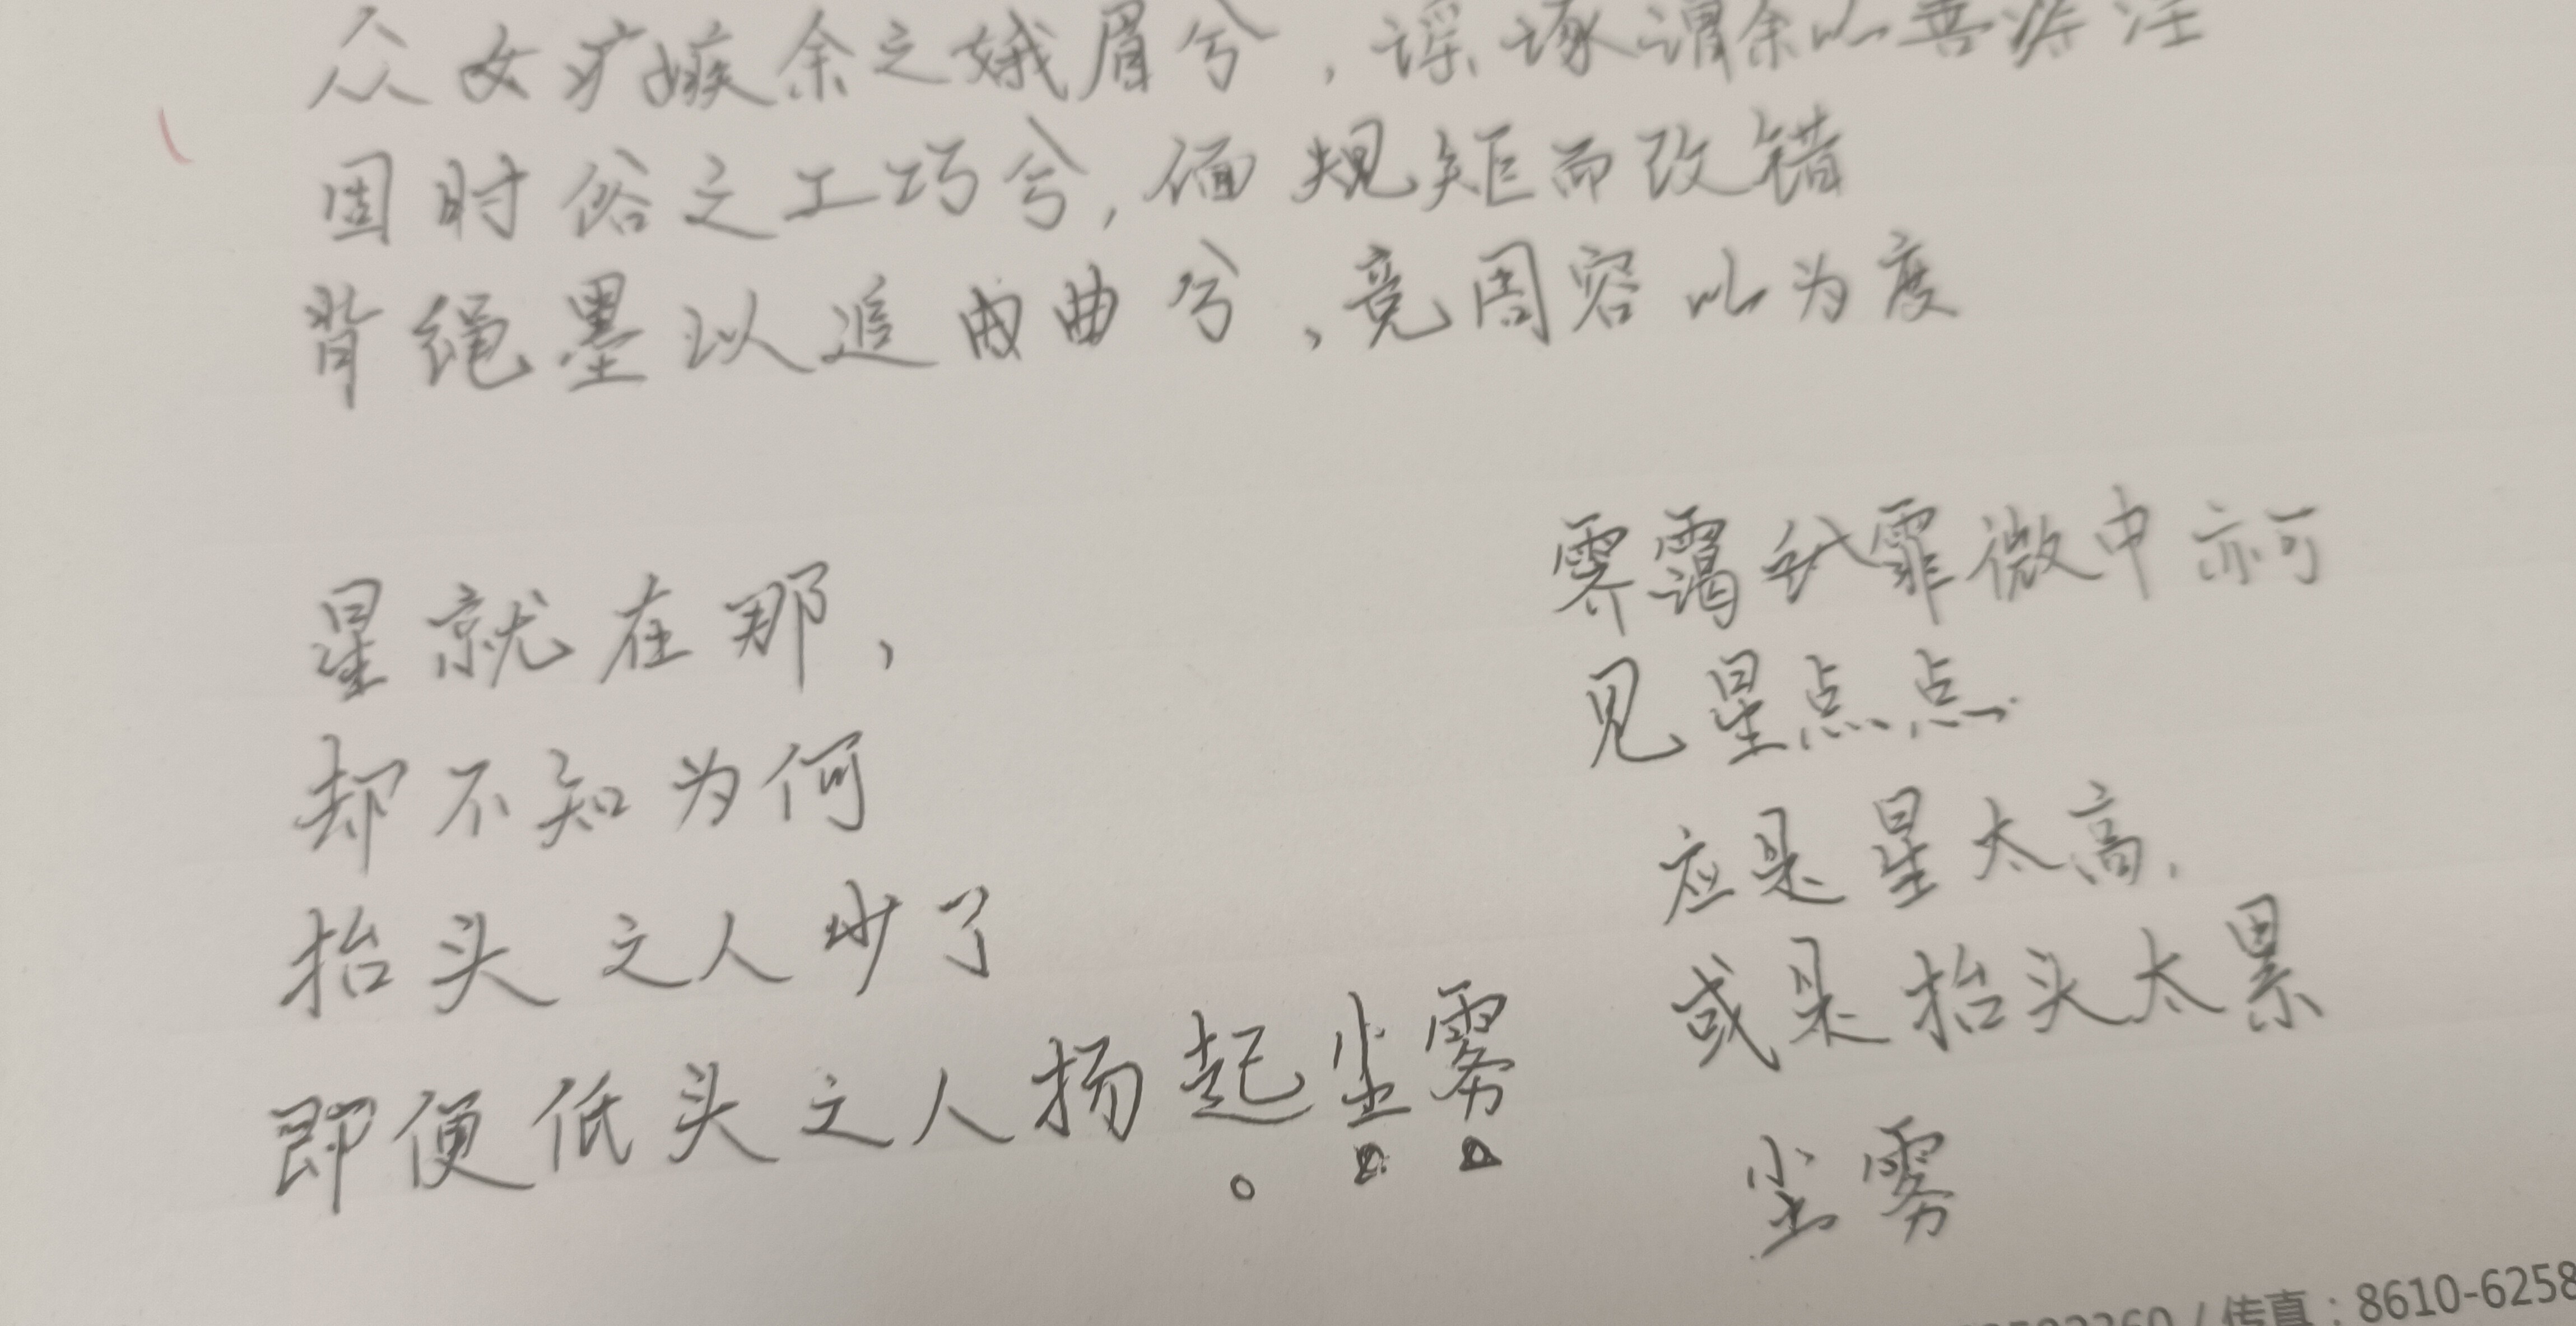 众女嫉余之娥眉兮，谣诼谓余以善淫
固时俗之工巧兮，偭规矩而改错
背绳墨以追曲兮，竞周容以为度
星就在那，
却不知为何
抬头之人少了
即便低头之人扬起尘雾。
霁霭霏微中亦可
见星点点
应是星太高，
或是抬头太累
尘雾
/ 传真：8610-6258